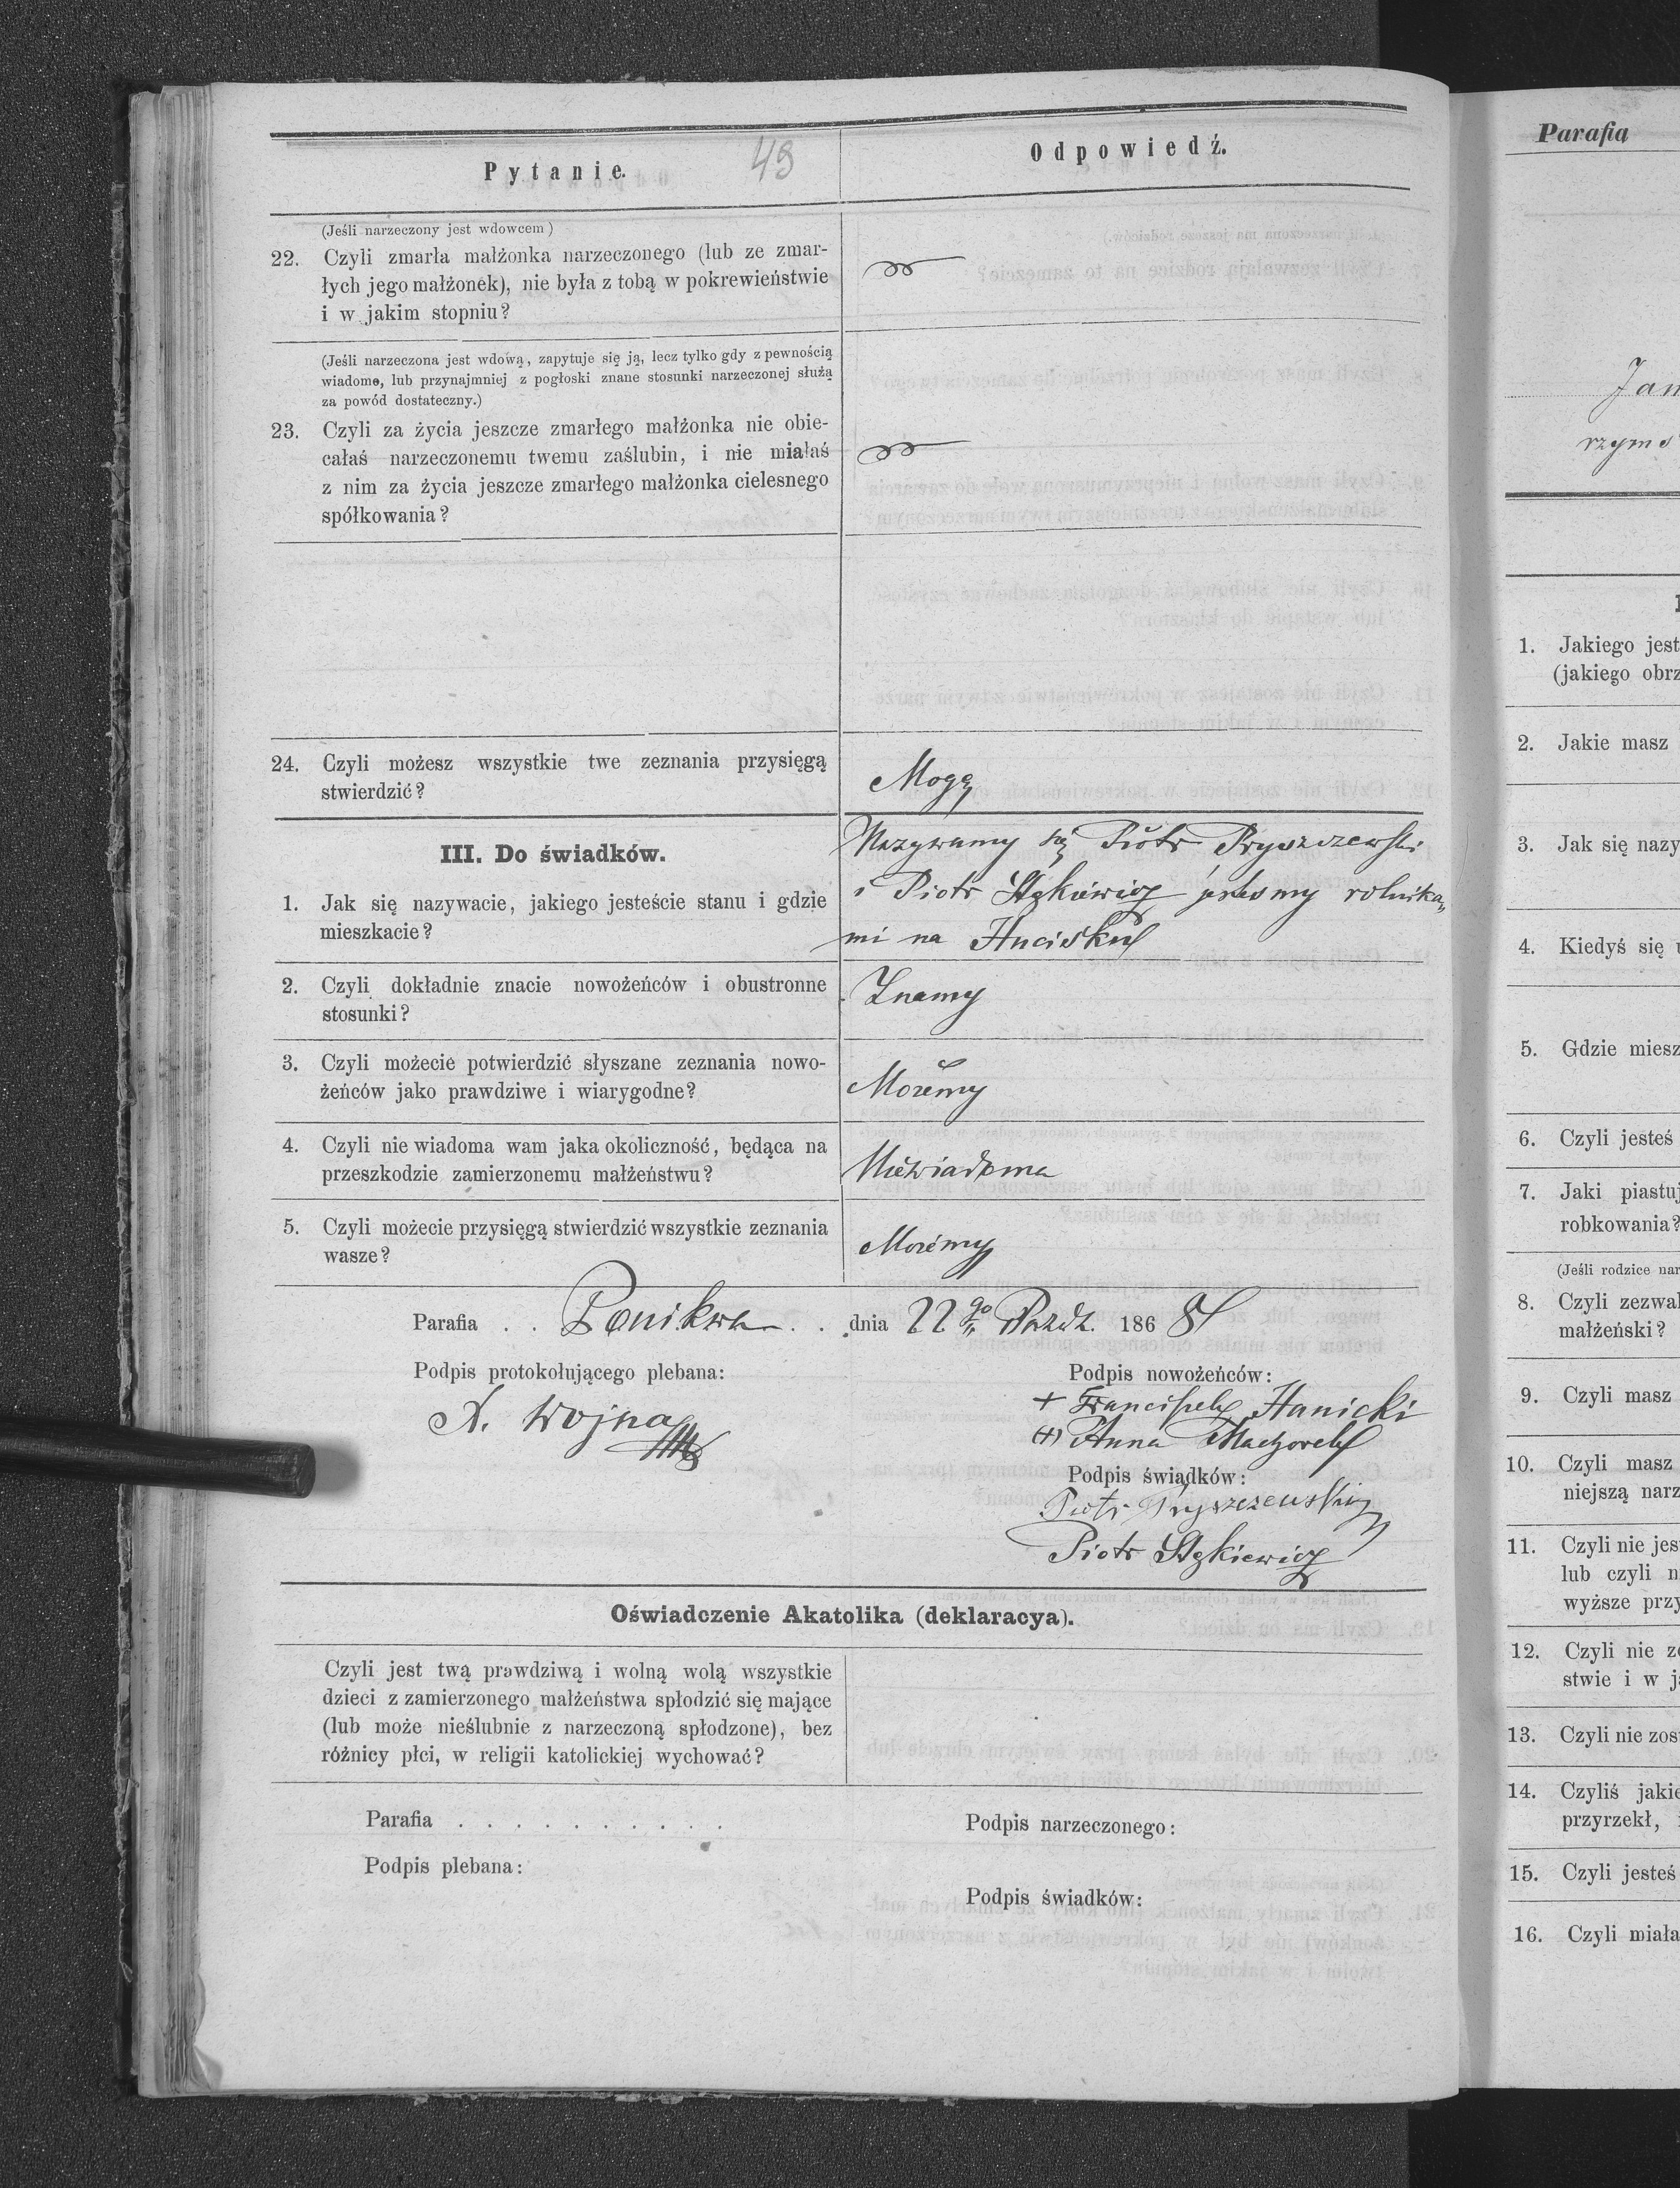 Pytanie.
49
Odpowiedź.
(Jeśli narzeczony jest wdowcem)
22. Czyli zmarła małżonka narzeczonego (lub ze zmar-
łych jego małżonek), nie była z tobą w pokrewieństwie
i w jakim stopniu?
(Jeśli narzeczona jest wdową, zapytuje się ją, lecz tylko gdy z pewnością
wiadome, lub przynajmniej z pogłoski znane stosunki narzeczonej służą
za powód dostateczny.)
23. Czyli za życia jeszcze zmarłego małżonka nie obie-
całaś narzeczonemu twemu zaślubin, i nie miałaś
z nim za życia jeszcze zmarłego małżonka cielesnego
spółkowania?
24. Czyli możesz wszystkie twe zeznania przysięgą
stwierdzić?
Mogę
III. Do świadków.
1. Jak się nazywacie, jakiego jesteście stanu i gdzie
mieszkacie?
Nazywamy się Piotr Pryszczewski
i Piotr jestesmy rolnika„
mi na Huciskuż
2. Czyli dokładnie znacie nowożeńców i obustronne
stosunki?
Znamy
3. Czyli możecie potwierdzić słyszane zeznania nowo-
żeńców jako prawdziwe i wiarygodne?
Możemy
4. Czyli nie wiadoma wam jaka okoliczność, będąca na
przeszkodzie zamierzonemu małżeństwu?
Niewiadoma
5. Czyli możecie przysięgą stwierdzić wszystkie zeznania
wasze?
Możemy
Parafia . . Ponikwa . . dnia 22go Paźdz. 1868
Podpis protokołującego plebana:
X. Wojna
Podpis nowożeńców:
+ Franciszek Hanicki
(+) Anna
Podpis świadków:
Piotr Pryszczewski
Piotr
Oświadczenie Akatolika (deklaracya).
Czyli jest twą prawdziwą i wolną wolą wszystkie
dzieci z zamierzonego małżeństwa spłodzić się mające
(lub może nieślubnie z narzeczoną spłodzone), bez
różnicy płci, w religii katolickiej wychować?
Parafia . . . . . . . . . .
Podpis plebana:
Podpis narzeczonego:
Podpis świadków:
Parafia
Jan
rzyms
1. Jakiego jest
(jakiego obrz
2. Jakie masz
3. Jak się nazy
4. Kiedyś się u
5. Gdzie miesz
6. Czyli jesteś
7. Jaki piastuj
robkowania?
(Jeśli rodzice nar
8. Czyli zezwal
małżeński?
9. Czyli masz
10. Czyli masz
niejszą narz
11. Czyli nie jes
lub czyli n
wyższe przy
12. Czyli nie ze
stwie i w j
13. Czyli nie zos
14. Czyliś jakie
przyrzekł,
15. Czyli jesteś
16. Czyli miała